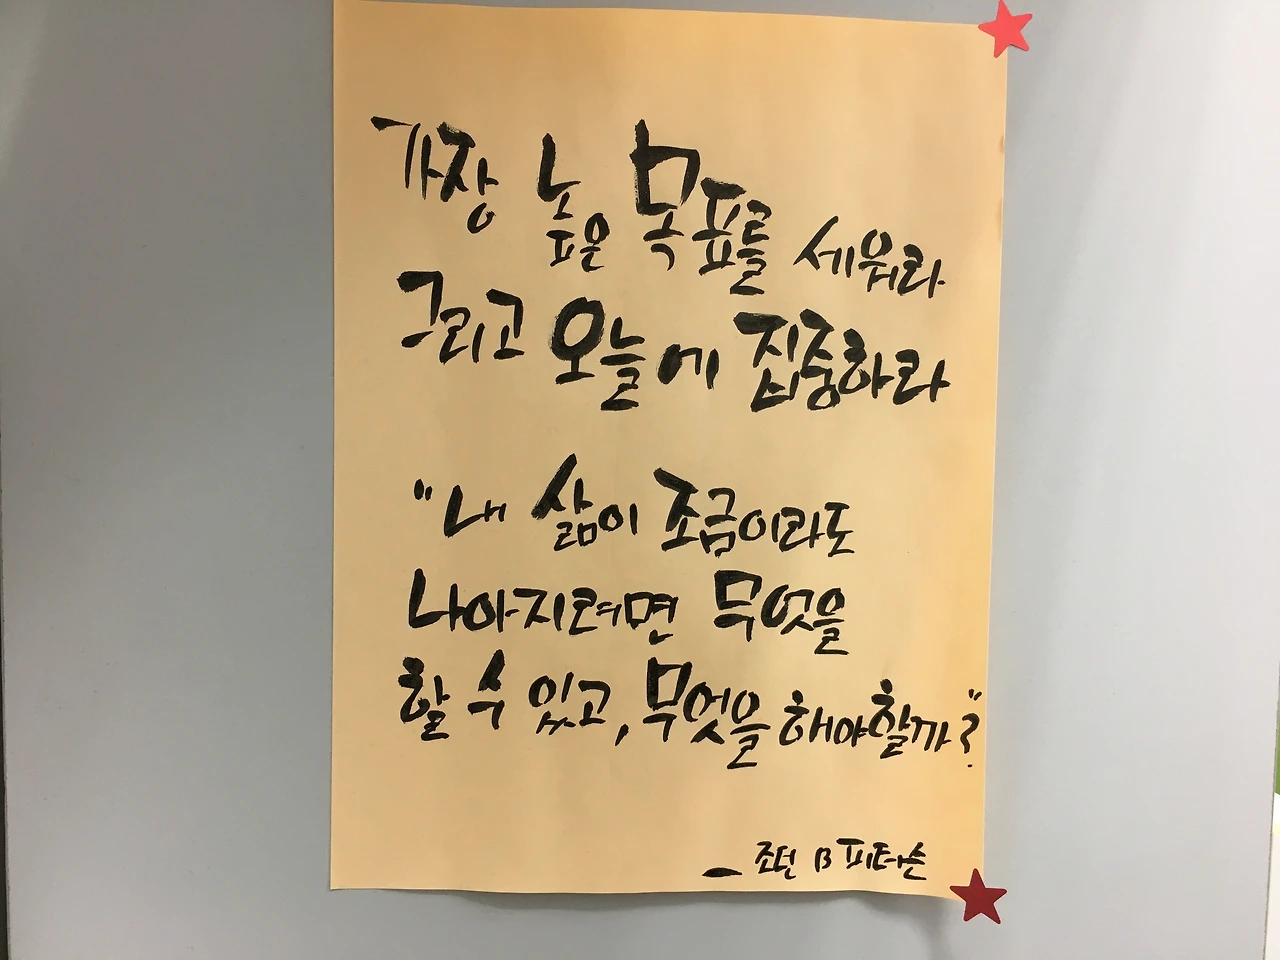 가장 높은 목표를 세워라
그리고 오늘에 집중하라
"내 삶이 조금이라도
나아지려면 무엇을
할 수 있고, 무엇을 해야할까?"
- 조던 B 피터슨